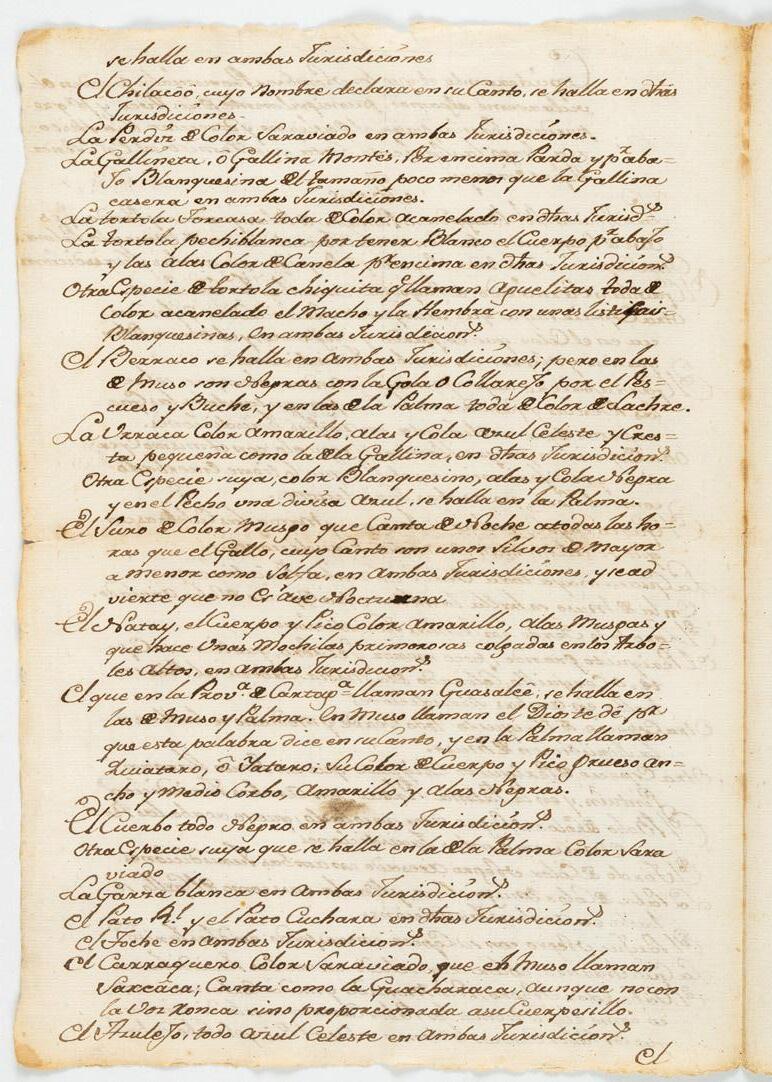 se halla en ambas Jurisdiciónes
El Chilacoó, cuyo Nombre declara en su Canto, se halla en dhãs
Jurisdiciones.
La Perdiz de Color Saraviado en ambas Jurisdiciones.
La Gallineta, ô Gallina Montés, Por encima Parda y pr. aba=
Jo Blanquesina del tamaño poco menos que la Gallina
casera en ambas Jurisdiciónes.
La tortola Torcasa toda de Color acanelado en dhas Jurisds.
La tortola pechiblanca por tener Blanco el Cuerpo pr. abaJo
y las alas Color de Canela pr. encima en dhas Jurisdicions.
Otra Especie de tortola chiquita q. llaman Aguelitas toda de
Color acanelado el Macho y la Hembra con unas
Blanquesinas, en ambas Jurisdicions.
El Berraco se halla en ambas Jurisdiciónes; pero en las
de Muso son Negras con la Gola o CollareJo por el Pes=
cueso y Buche, y en las de la Palma toda de Color de Lachre.
La Vrraca Color amarillo, alas y Cola Azul Celeste y Cres=
ta pequeña como la de la Gallina, en dhas Jurisdicions.
Otra Especie suya, color Blanquesino, alas y Cola Negra
y en el Pecho vna divisa Azul, se halla en la Palma.
El Suro de Color Musgo que Canta de Noche a todas las ho=
ras que el Gallo, cuyo Canto son unos Silvos de Mayor
a menor como Solfa, en ambas Jurisdiciones, y se ad
vierte que no es Ave Nocturna
El Patay, el Cuerpo y Pico Color Amarillo, alas Musgas y
que hace Unas Mochilas primorosas colgadas en los Arbo=
les Altos, en ambas Jurisdicions.
El que en la Prova. de Cartaga. llaman Guasaleé, se halla en
las de Muso y Palma. En Muso llaman el Dioste dé pr.
que esta palabra dice en su Canto, y en la Palma llaman
Quiataro, ô Yataro; Su Color de Cuerpo y Pico grueso an=
cho y Medio Corbo, Amarillo y Alas Negras.
El Cuerbo todo Negro en ambas Jurisdicions.
Otra Especie suya que se halla en la de la Palma Color Sara
viado
La Garza blanca en Ambas Jurisdicions.
el Pato Rl. y el Pato Cuchara en dhas Jurisdicions.
el Toche en ambas Jurisdicions.
el Carraquero Color Saraviado, que en Muso llaman
Sarcaca; Canta como la Guacharaca, aunque no con
la Voz Ronca sino proporcionada a su Cuerpesillo.
El AzuleJo, todo azul Celeste en Ambas Jurisdicions.
el